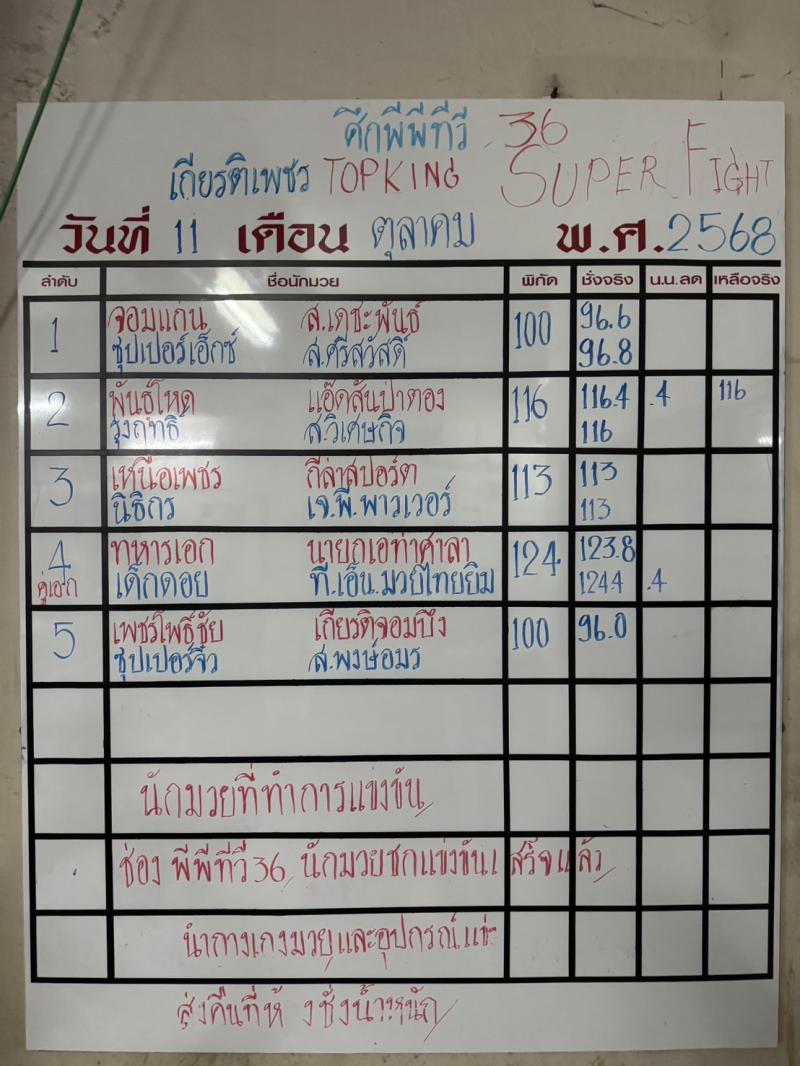 ศึกพีพีทีวี 36
เกียรติเพชร TOPKING SUPER FIGHT
วันที่ 11 เดือน ตุลาคม พ.ศ.2568
ลำดับ ชื่อนักมวย พิกัด ชั่งจริง น.น.ลด เหลือจริง
1 จอมแก่น ส.เดชะพันธ์ 100 96.6
ซุปเปอร์เอ็กซ์ ส.ศรีสวัสดิ์ 96.8
2 พันธุ์โหด แอ๊ดสันป่าตอง 116 116.4 .4 116
รุ่งฤทธิ์ ส.วิเศษกิจ 116
3 เหนือเพชร กีล่าสปอร์ต 113 113
นิธิกร เจ.พี.พาวเวอร์ 113
4 ทหารเอก นายกเอท่าศาลา 124 123.8
คู่เอก เด็กดอย ที.เอ็น.มวยไทยยิม 124.4 .4
5 เพชรโพธิ์ชัย เกียรติจอมบึง 100 96.0
ซุปเปอร์จิ๋ว ส.พงษ์อมร
นักมวยที่ทำการแข่งขัน
ช่อง พีพีทีวี 36 นักมวยชกแข่งขันเสร็จแล้ว
นำกางเกงมวยและอุปกรณ์
ส่งคืนที่ห้ งชั่งน้ำหนัก